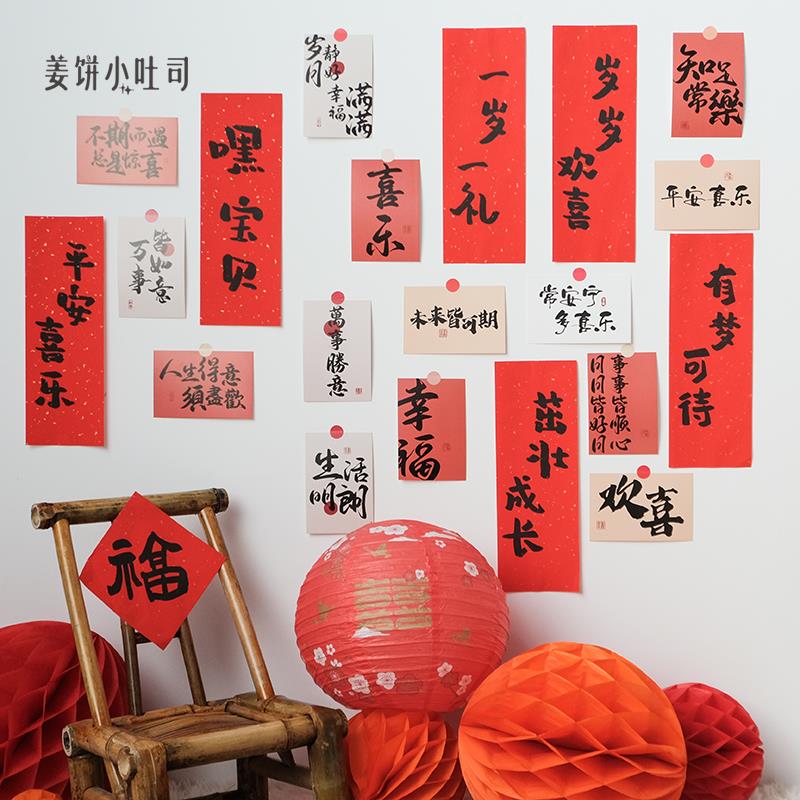 姜饼小吐司
不期而遇
总是惊喜
嘿宝贝
岁月
静好
幸福
满满
一岁
一礼
岁岁
欢喜
知足
常樂
喜
乐
平安喜乐
平安
喜乐
万事
皆如意
萬事勝意
未来皆可期
常安宁
多喜乐
有梦
可待
人生得意
須盡歡
幸福
茁壮
成长
事事皆顺心
日日皆好日
生活
明朗
欢喜
福
囍